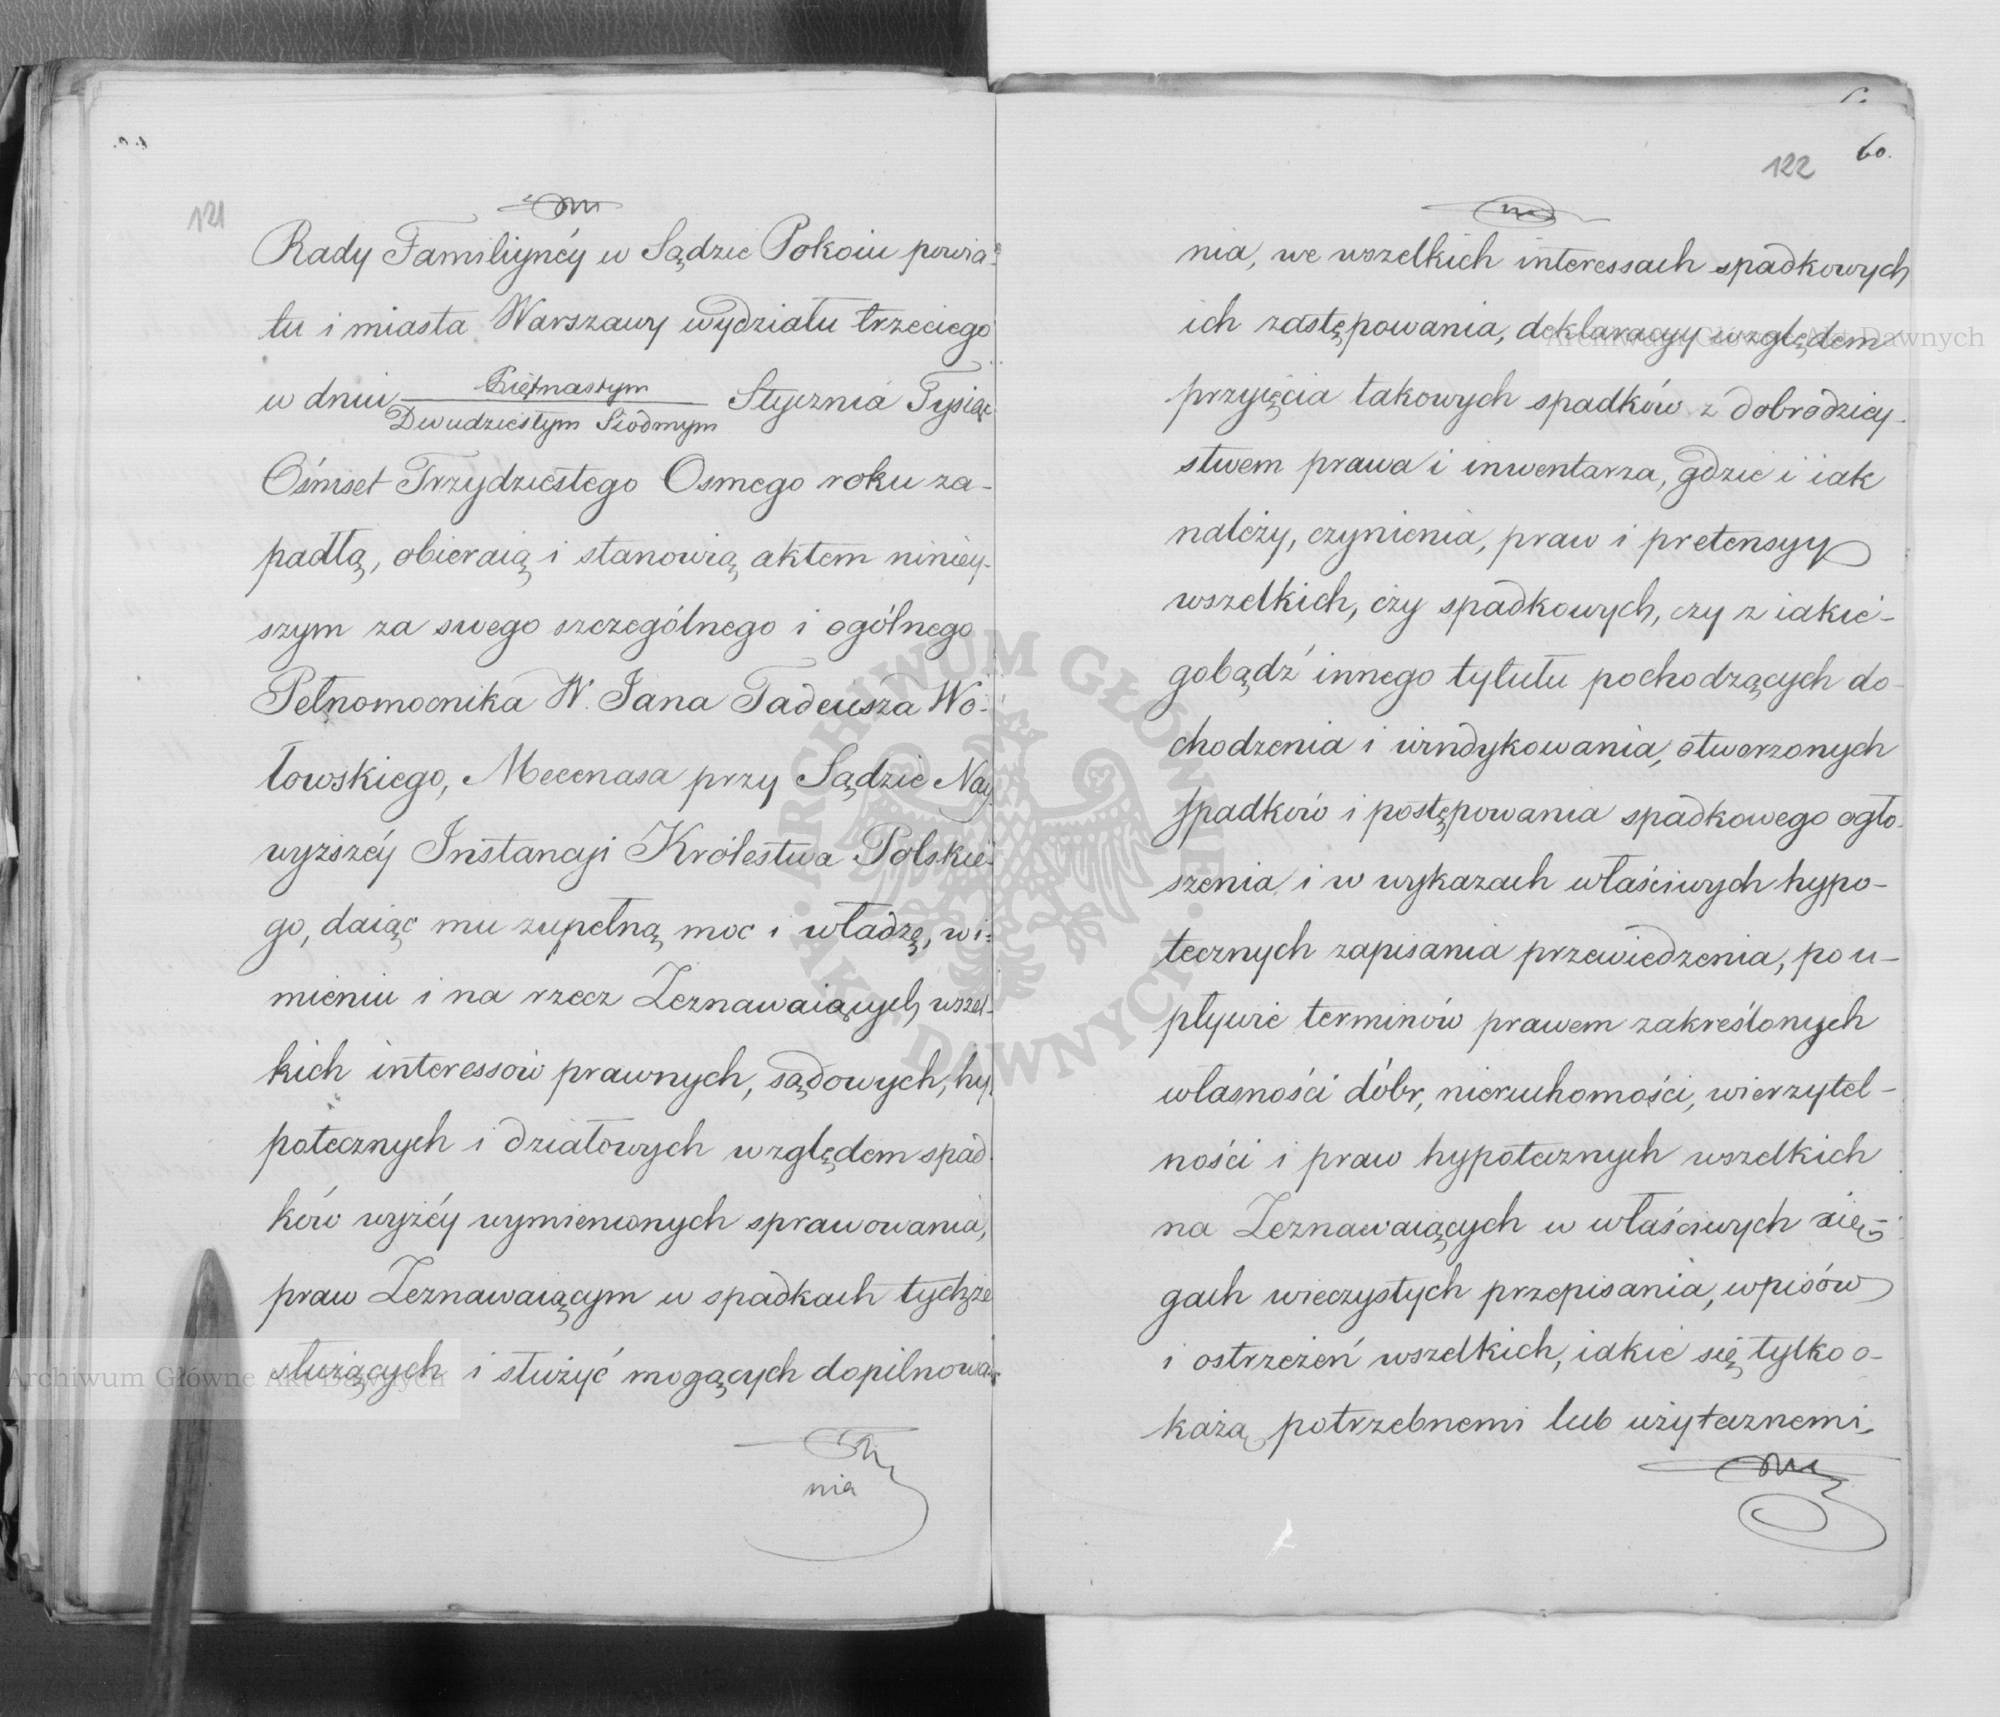 121
Rady Familiynéy w Sądzie Pokoiu powia-
tu i miasta Warszawy wydziału trzeciego
w dniu Piętnastym Stycznia Tysiąc
Dwudziestym Siódmym
Ośmset Trzydziestego Osmego roku za-
padłą, obieraią i stanowią aktem niniey-
szym za swego szczególnego i ogólnego
Pełnomocnika W. Jana Tadeusza Wo-
łowskiego, Mecenasa przy Sądzie Nay
wyższéy Instancyi Królestwa Polskie-
go, daiąc mu zupełną moc i władzę, w i-
mieniu i na rzecz Zeznawaiących, wszel-
kich interessów prawnych, sądowych, hy
potecznych i działowych względem spad-
ków wyżéy wymienionych sprawowania,
praw Zeznawaiącym w spadkach tychże
służących i służyć mogących dopilnowa-
nia
60.
122
nia, we wszelkich interessach spadkowych
ich zastępowania, deklaracyy względem
przyięcia takowych spadków z dobrodziey-
stwem prawa i inwentarza, gdzie i iak
należy, czynienia, praw i pretensyy
wszelkich, czy spadkowych, czy z iakie-
gobądź innego tytułu pochodzących do-
chodzenia i windykowania, otworzonych
spadków i postępowania spadkowego ogło-
szenia i w wykazach właściwych hypo-
tecznych zapisania przewiedzenia, po u-
pływie terminów prawem zakreślonych
własności dóbr, nieruchomości, wierzytel-
ności i praw hypotecznych wszelkich
na Zeznawaiących w właściwych xię-
gach wieczystych przepisania, wpisów
i ostrzeżeń wszelkich, iakie się tylko o-
każą potrzebnemi lub użytecznemi,
ARCHIWUM GŁÓWNE
AKT DAWNYCH
Archiwum Główne Akt Dawnych
Archiwum Główne Akt Dawnych